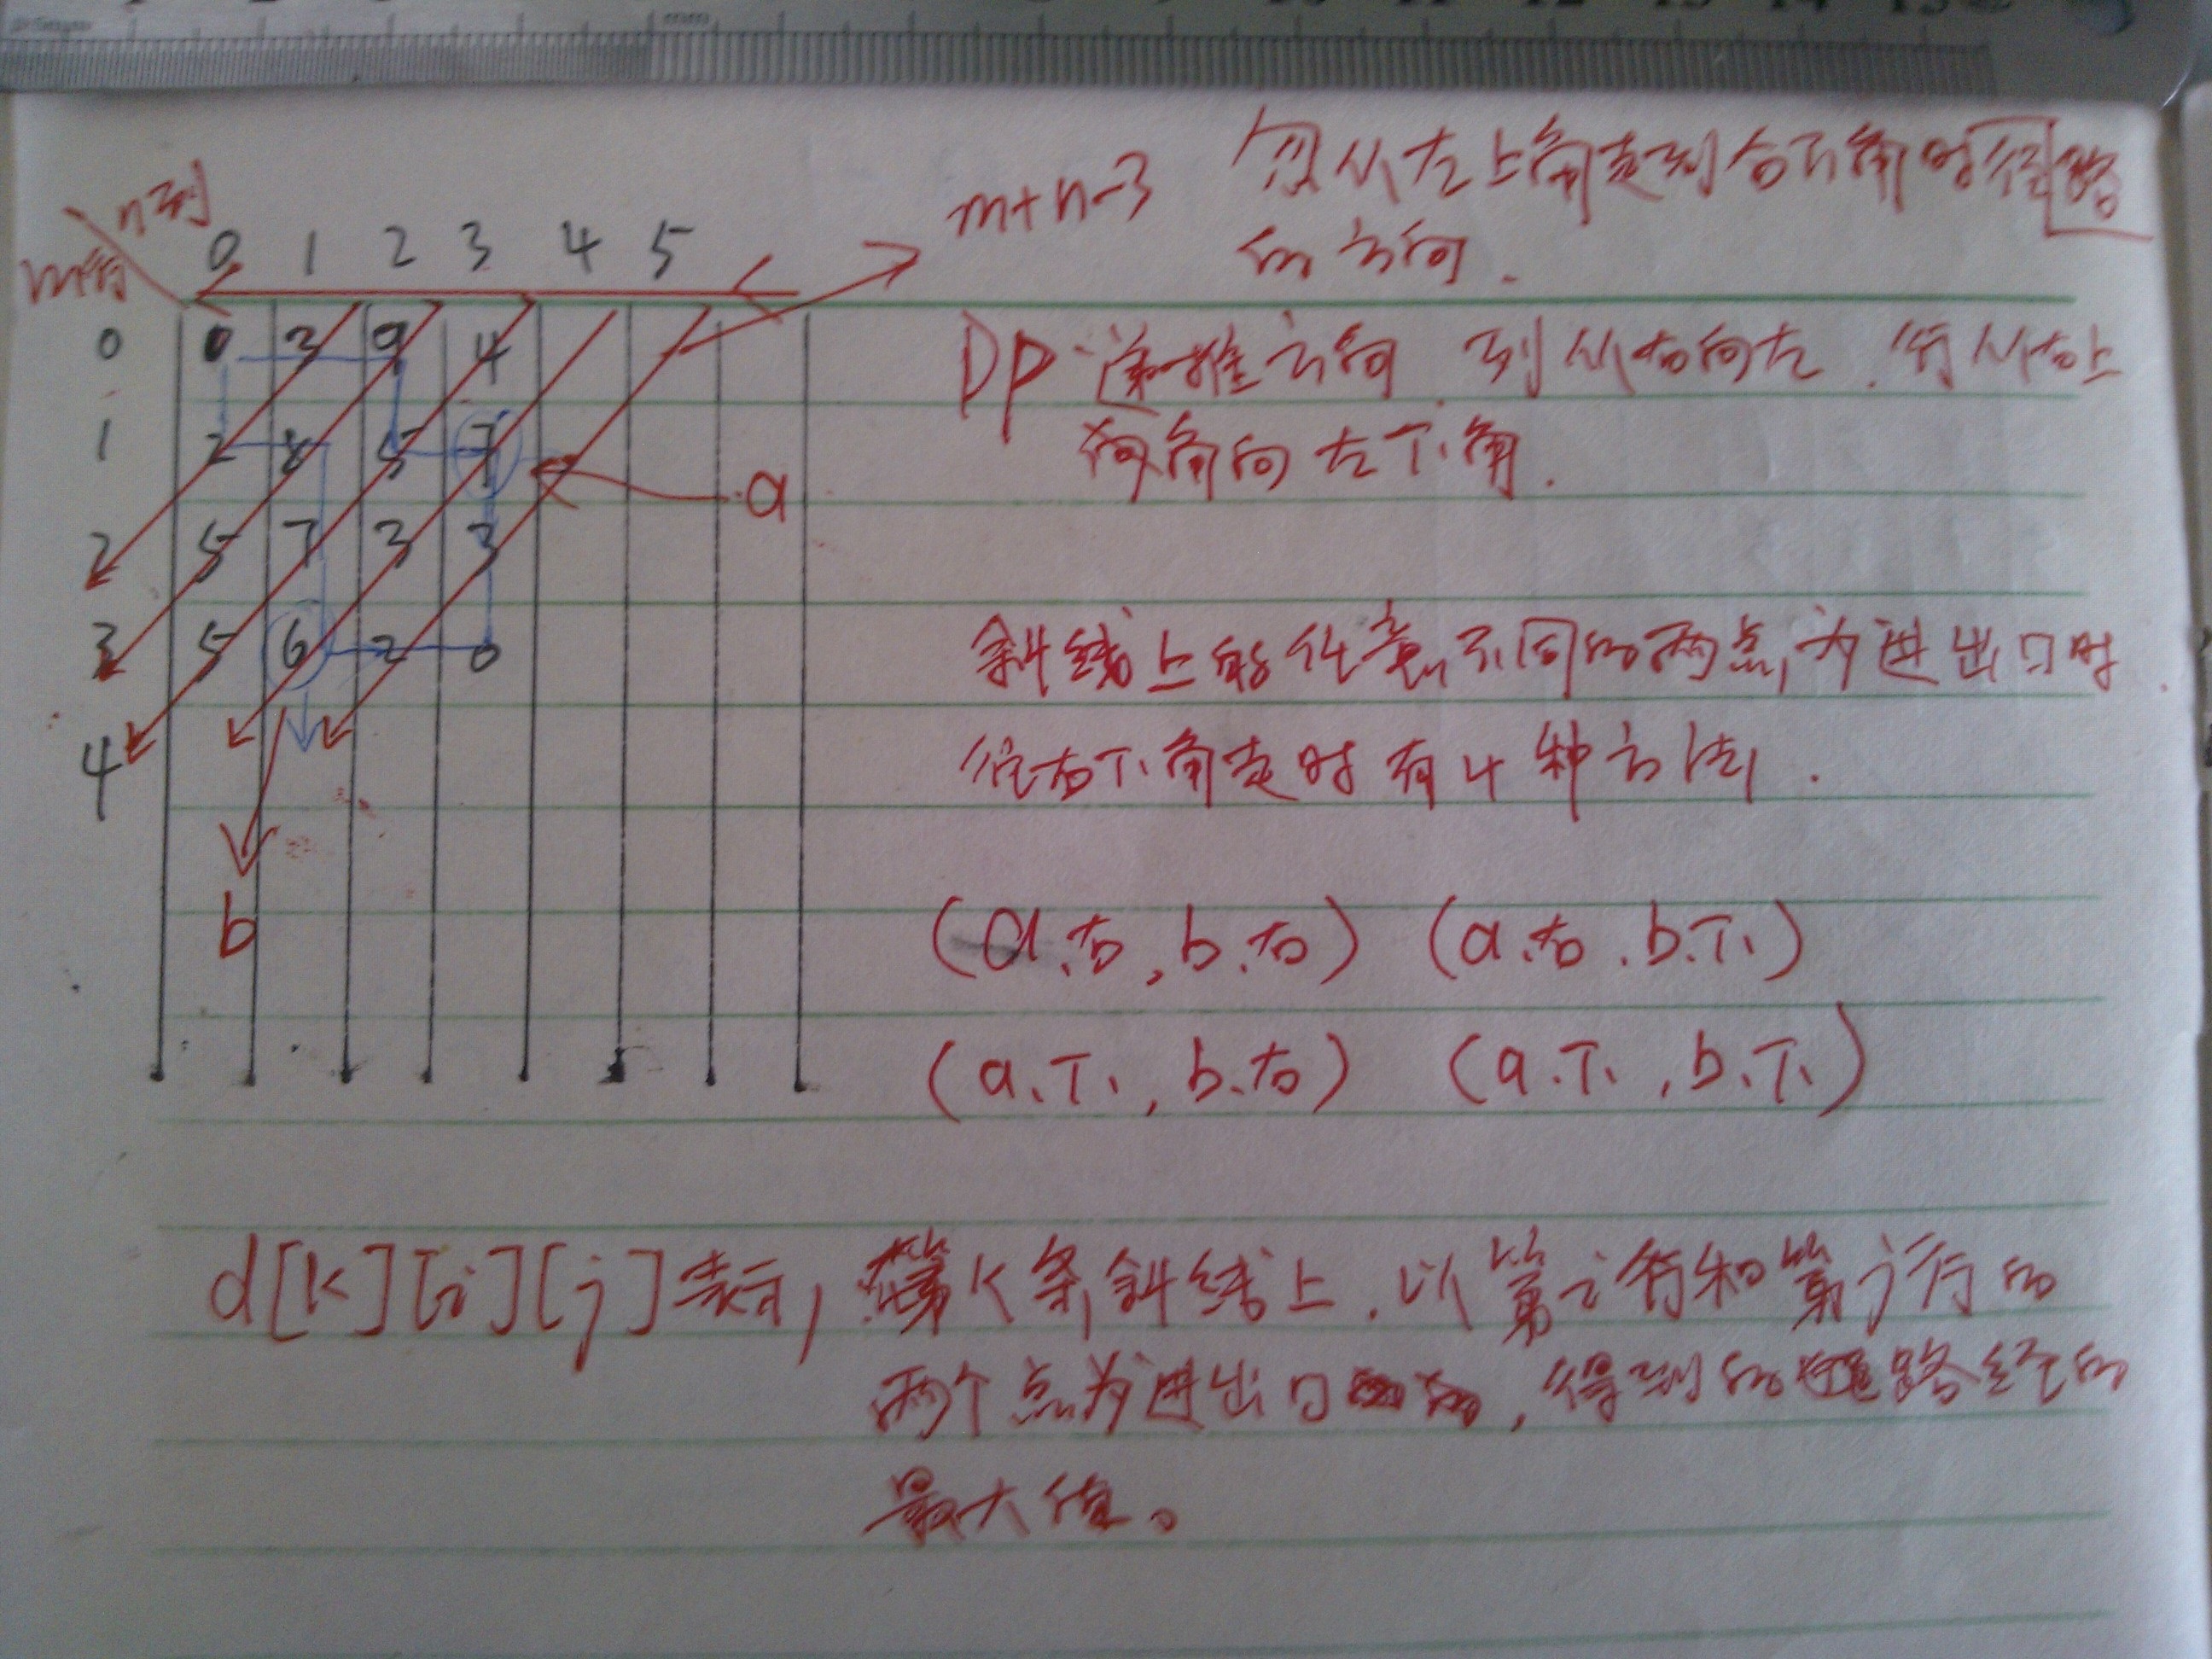 n列
m行
0 1 2 3 4 5
0 0 3 9 4
1 2 8 5 7
2 5 7 3 3
3 5 6 2 0
4
a
b
m+n-3
从左上角走到右下角时径路
的方向.
DP 递推方向 列从右向左. 行从右上
角向左下角.
斜线上的任意不同的两点,为进出口时
往右下角走时有4种方法.
(a.右, b.右) (a.右. b.下)
(a.下, b.右) (a.下, b.下)
d[k][i][j]表示, 第k条斜线上. 以第i行和第j行的
两个点为进出口的, 得到的路径的
最大值。